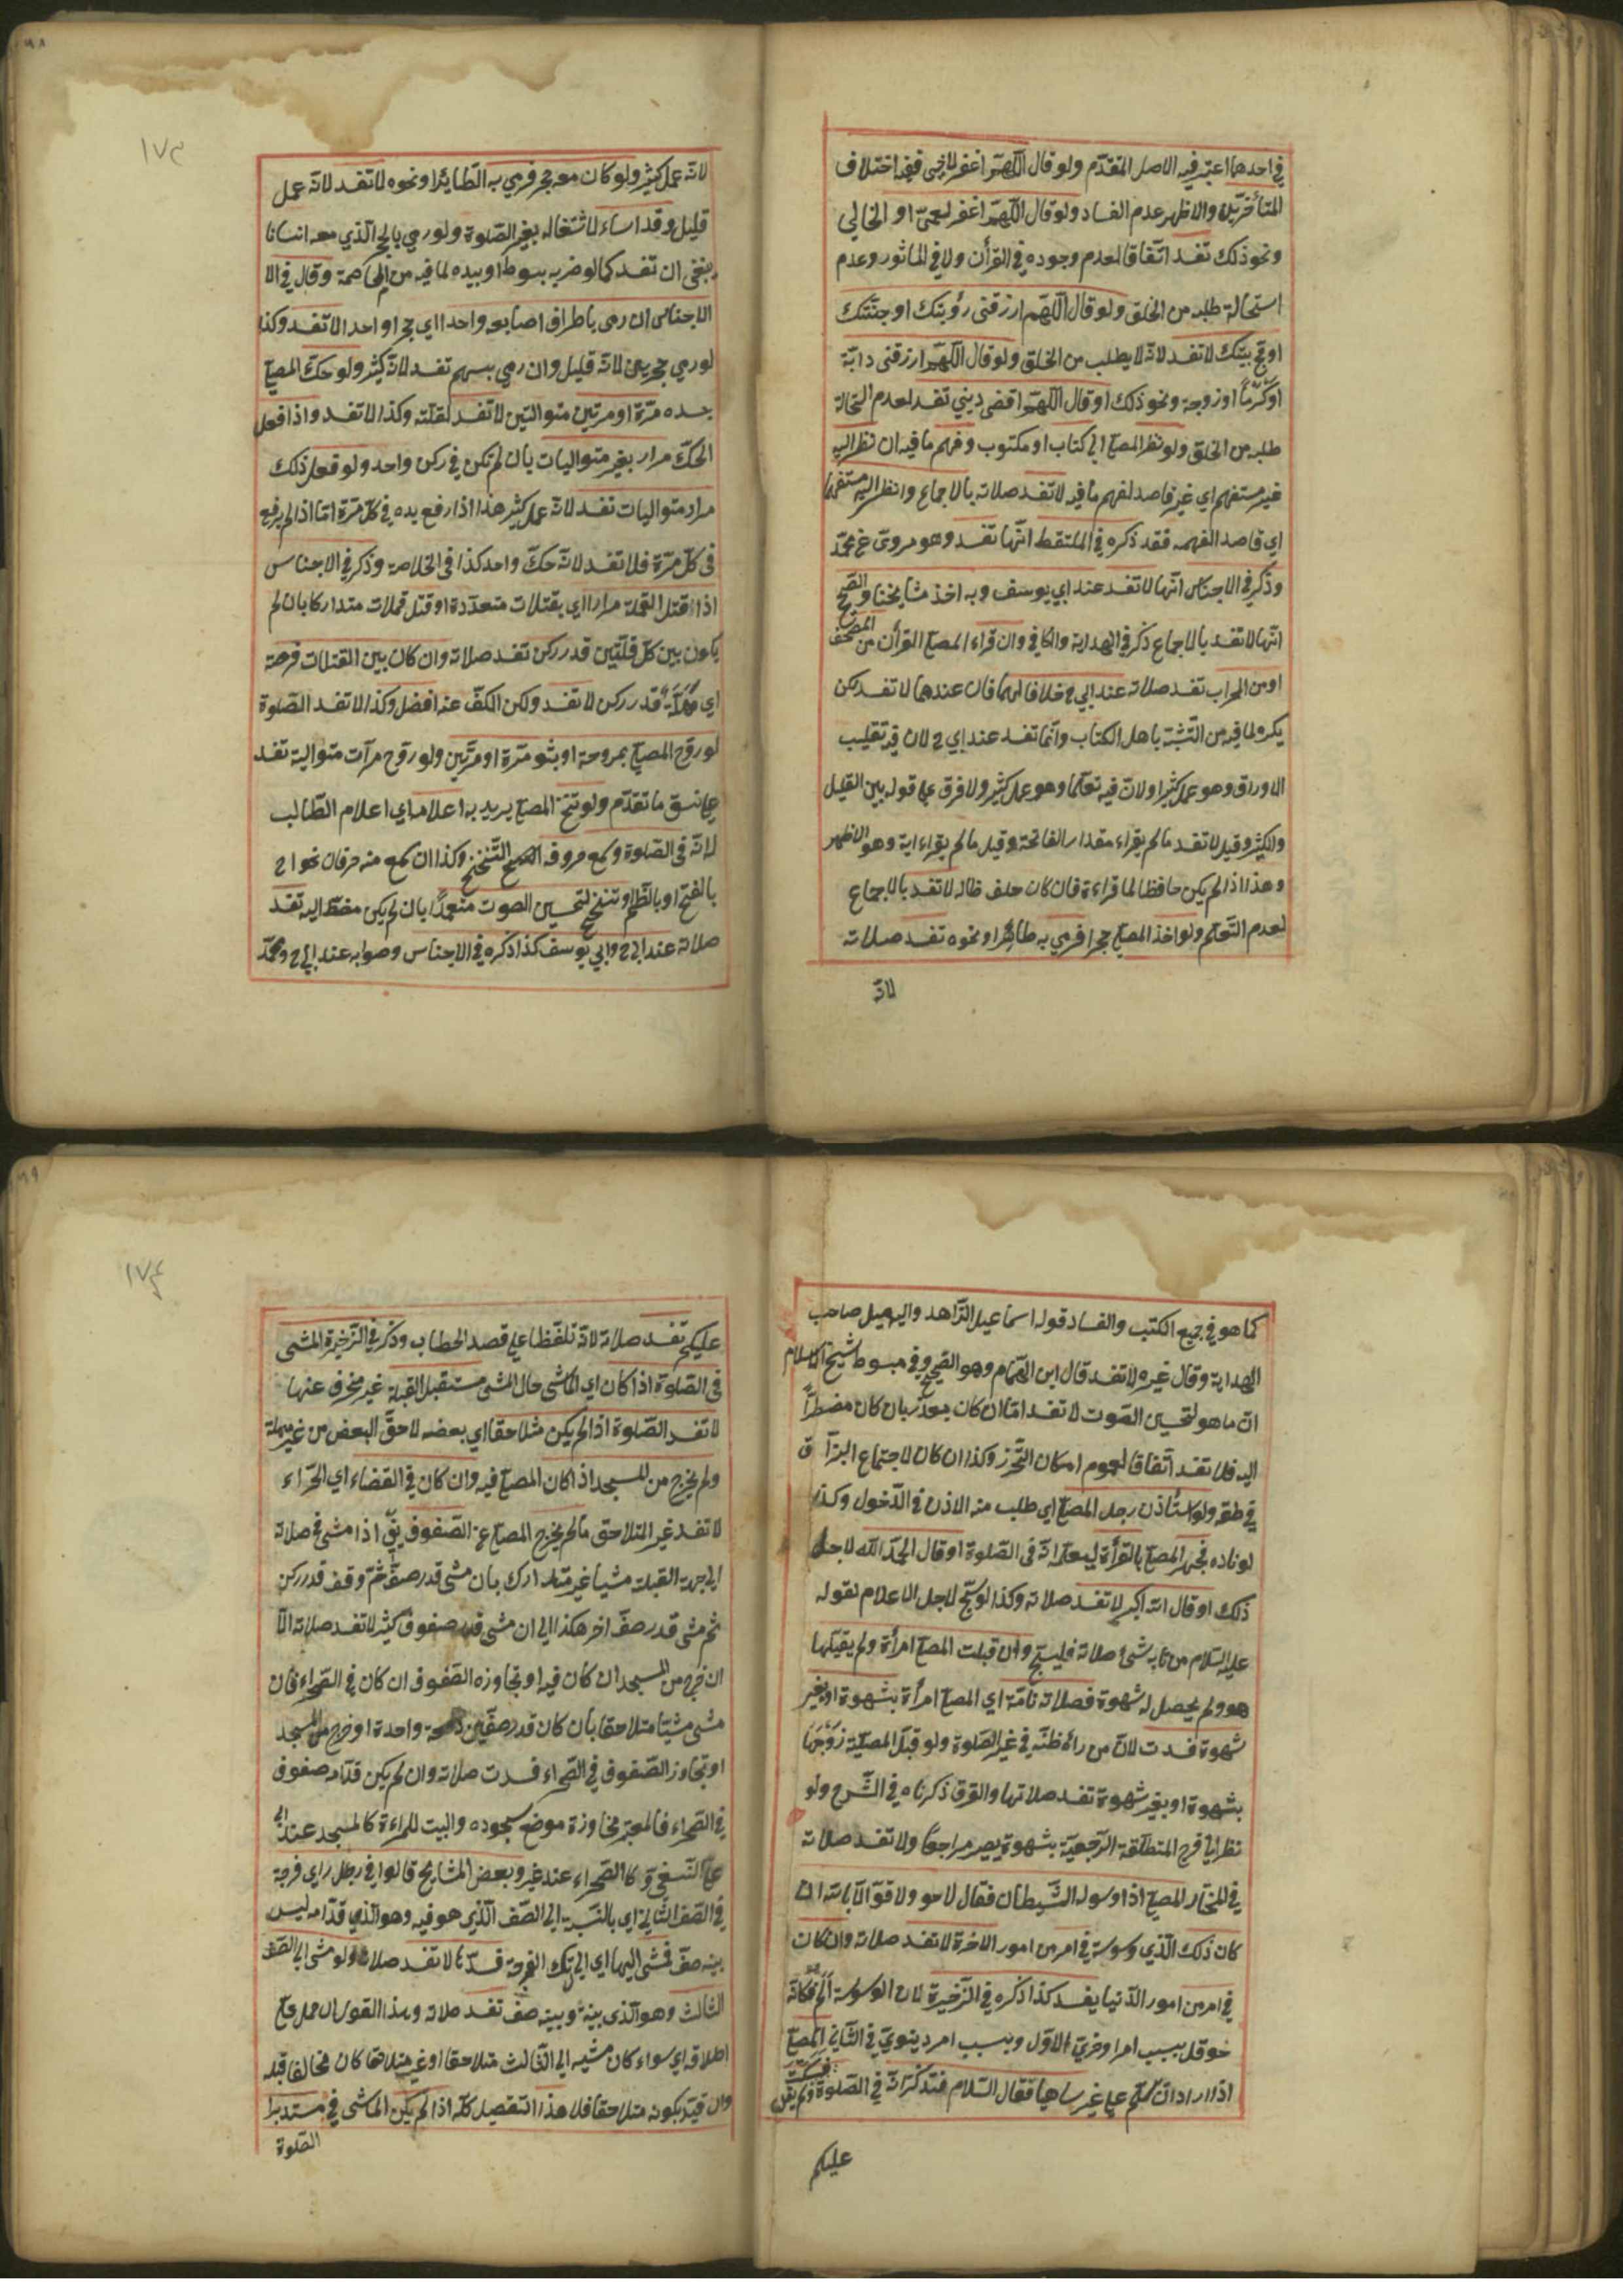 في احدهما اعتبر فيه الاصل المتقدم ولو قال اللهم اغفر لاخي ففيه اختلاف
المتأخرين والاظهر عدم الفساد ولو قال اللهم اغفر لعمي او لخالي
ونحو ذلك تفسد اتفاقا لعدم وجوده في القرأن ولا في المأثور وعدم
استحالة طلبه من الخلق ولو قال اللهم ارزقني رؤيتك او جنتك
او حج بيتك لا تفسد لانه لا يطلب من الخلق ولو قال اللهم ارزقني دابة
او كرما او زوجة ونحو ذلك او قال اللهم اقض ديني تفسد لعدم استحالة
طلبه من الخلق ولو نظر المصلي الى كتاب او مكتوب وفهم ما فيه ان نظر اليه
غير مستفهم اي غير قاصد لفهم ما فيه لا تفسد صلاته بالاجماع وان نظر اليه مستفهما
اي قاصدا لفهمه فقد ذكره في الملتقط انها تفسد وهو مروي عن محمد
وذكر في الاجناس انها لا تفسد عند ابي يوسف وبه اخذ مشايخنا والصحيح
انها لا تفسد بالاجماع ذكر في الهداية والكافي وان قراء المصلي القرأن من المصحف
او من المحراب تفسد صلاته عند ابي ح خلافا لهما فان عندهما لا تفسد لكن
يكره لما فيه من التشبه باهل الكتاب وانما تفسد عند ابي ح لان فيه تقليب
الاوراق وهو عمل كثير او لان فيه تعلما وهو عمل كثير ولا فرق على قوله بين القليل
والكثير وقيل لا تفسد ما لم يقراء مقدار الفاتحة وقيل ما لم يقراء اية وهو الاظهر
وهذا اذا لم يكن حافظا لما قراءة فان كان حلف ظاله لا تفسد بالاجماع
لعدم التعلم ولو اخذ المصلي حجرا فرمي به طائرا ونحوه تفسد صلاته
لانه
١٧٣
لانه عمل كثير ولو كان معه حجر فرمي به الطائر او نحوه لا تفسد لانه عمل
قليل وقد اساء لاشتغاله بغير الصلوة ولو رمي بالحجر الذي معه انسانا
ينبغي ان تفسد كما لو ضربه بسوط او بيده لما فيه من المخاصمة وقال في الا
الاجناس ان رمى باطراف اصابعه واحدا اي حجرا واحدا لا تفسد وكذا
لو رمي حجرين لانه قليل وان رمي بسهم تفسد لانه كثير ولو حك المصلي
جسده مرة او مرتين متواليتين لا تفسد لقلته وكذا لا تفسد واذا فعل
الحك مرار بغير متواليات بان لم تكن في ركن واحد ولو فعل ذلك
مرار متواليات تفسد لانه عمل كثير هذا اذا رفع يده في كل مرة اما اذا لم يرفع
في كل مرة فلا تفسد لانه حك واحد كذا في الخلاصة وذكر في الاجناس
اذا قتل القملة مرارا اي بقتلات متعددة او قتل قملات متداركا بان لم
يكون بين كل قتلتين قدر ركن تفسد صلاته وان كان بين القتلات فرجة
اي مهلة قدر ركن لا تفسد ولكن الكف عنه افضل وكذا لا تفسد الصلوة
لو روح المصلي بمروحة او بثوبه مرة او مرتين ولو روح مرات متوالية تفسد
على نسق ما تقدم ولو تنحنح المصلي يريد به اعلاما اي اعلام الطالب
لانه في الصلوة وسمع حروفه الصحيح التنحنح وكذا ان سمع منه حرفان نحو اح
بالفتح او بالضم او تنحنح لتحسين الصوت متعمدا بان لم يكن مضطرا اليه تفسد
صلاته عند ابي ح وابي يوسف كذا ذكره في الاجناس وصوابه عند ابي ح ومحمد
كما هو في جميع الكتب والفساد قول اسماعيل الزاهد واليه ميل صاحب
الهداية وقال غيره لا تفسد قال ابن الهمام وهو الصحيح وفي مبسوط شيخ الاسلام
ان ما هو لتحسين الصوت لا تفسد اما ان كان بعذر بان كان مضطرا
اليه فلا تفسد اتفاقا لعدم امكان التحرز وكذا ان كان لاجتماع البزاق
في حلقه ولو استأذن رجل المصلي اي طلب منه الاذن في الدخول وكذا
لو ناده فجهر المصلي بالقرأة ليعلم انه في الصلوة او قال الحمد لله لاجل
ذلك او قال الله اكبر لا تفسد صلاته وكذا لو سبح لاجل الاعلام لقوله
عليه السلام من نابه شئ صلاته فليسبح وان قبلت المصلي امرأة ولم يقبلها
هو ولم يحصل له شهوة فصلاته تامة اي المصلي امرأة بشهوة او بغير
شهوة فسدت لان من رأه ظنه في غير الصلوة ولو قبل المصلية زوجها
بشهوة او بغير شهوة تفسد صلاتها والفرق ذكرناه في الشرح ولو
نظر الى فرج المتطلقة الرجعية بشهوة يصير مراجعا ولا تفسد صلاته
في المختار المصلي اذا وسوسه الشيطان فقال لا حو ولا قوة الا بالله ان
كان ذلك الذي وسوسه في امر من امور الاخرة لا تفسد صلاته وان كان
في امر من امور الدنيا يفسد كذا ذكره في الذخيرة لان الوسوسة فكانه
حوقل بسبب امر اخروي الاول وبسبب امر دينوي في الثاني المصلي
اذا اراد ان سلم على غير ساهيا فقال السلام فتذكر انه في الصلوة فسكت ولم يقل
عليكم
١٧٤
عليكم تفسد صلاته لانه تلفظا على قصد الخطاب وذكر في الذخيرة المشي
في الصلوة اذا كان اي الماشي حال المشي مستقبل القبلة غير منحرف عنها
لا تفسد الصلوة اذا لم يكن متلاحقا اي بعضه لاحق البعض من غير مهلة
ولم يخرج من المسجد اذا كان المصلي فيه وان كان في الفضاء اي الصحراء
لا تفسد غير المتلاحق ما لم يخرج المصلي عن الصفوف اذا مشى في صلاته
الى جهة القبلة مشيا غير متدارك بان مشى قدر صف ثم وقف قدر ركن
ثم مشى قدر صف اخر هكذا الى ان مشى قدر صفوف كثير لا تفسد صلاته الا
ان خرج من المسجد ان كان فيه او تجاوزه الصفوف ان كان في الصحراء فان
مشى مشيا متلاحقا بان كان قدر صفين دفعة واحدة او خرج من المسجد
او تجاوز الصفوف في الصحراء فسدت صلاته وان لم يكن قدامه صفوف
في الصحراء فالمعتبر مجاوزة موضع سجوده والبيت للمراءة كالمسجد عند ابي
علي النسفي وكالصحراء عند غير وبعض المشايخ قالوا في رجل راى فرجة
في الصف الثاني اي بالنسبة الى الصف الذي هو فيه وهو الذي قدامه ليس
بينه صف فمشى اليها اي الى تلك الفرجة فسدها لا تفسد صلاته ولو مشى الى الصف
الثالث وهو الذي بينه وبينه صف تفسد صلاته وهذا القول ان حمل على
اطلاقه اي سواء كان مشيه الى الثالث متلاحقا او غير متلاحقا كان مخالفا قبله
وان قيد بكونه متلاحقا فلا هذا التفصيل كله اذا لم يكن الماشي في مستدبرا
الصلوة